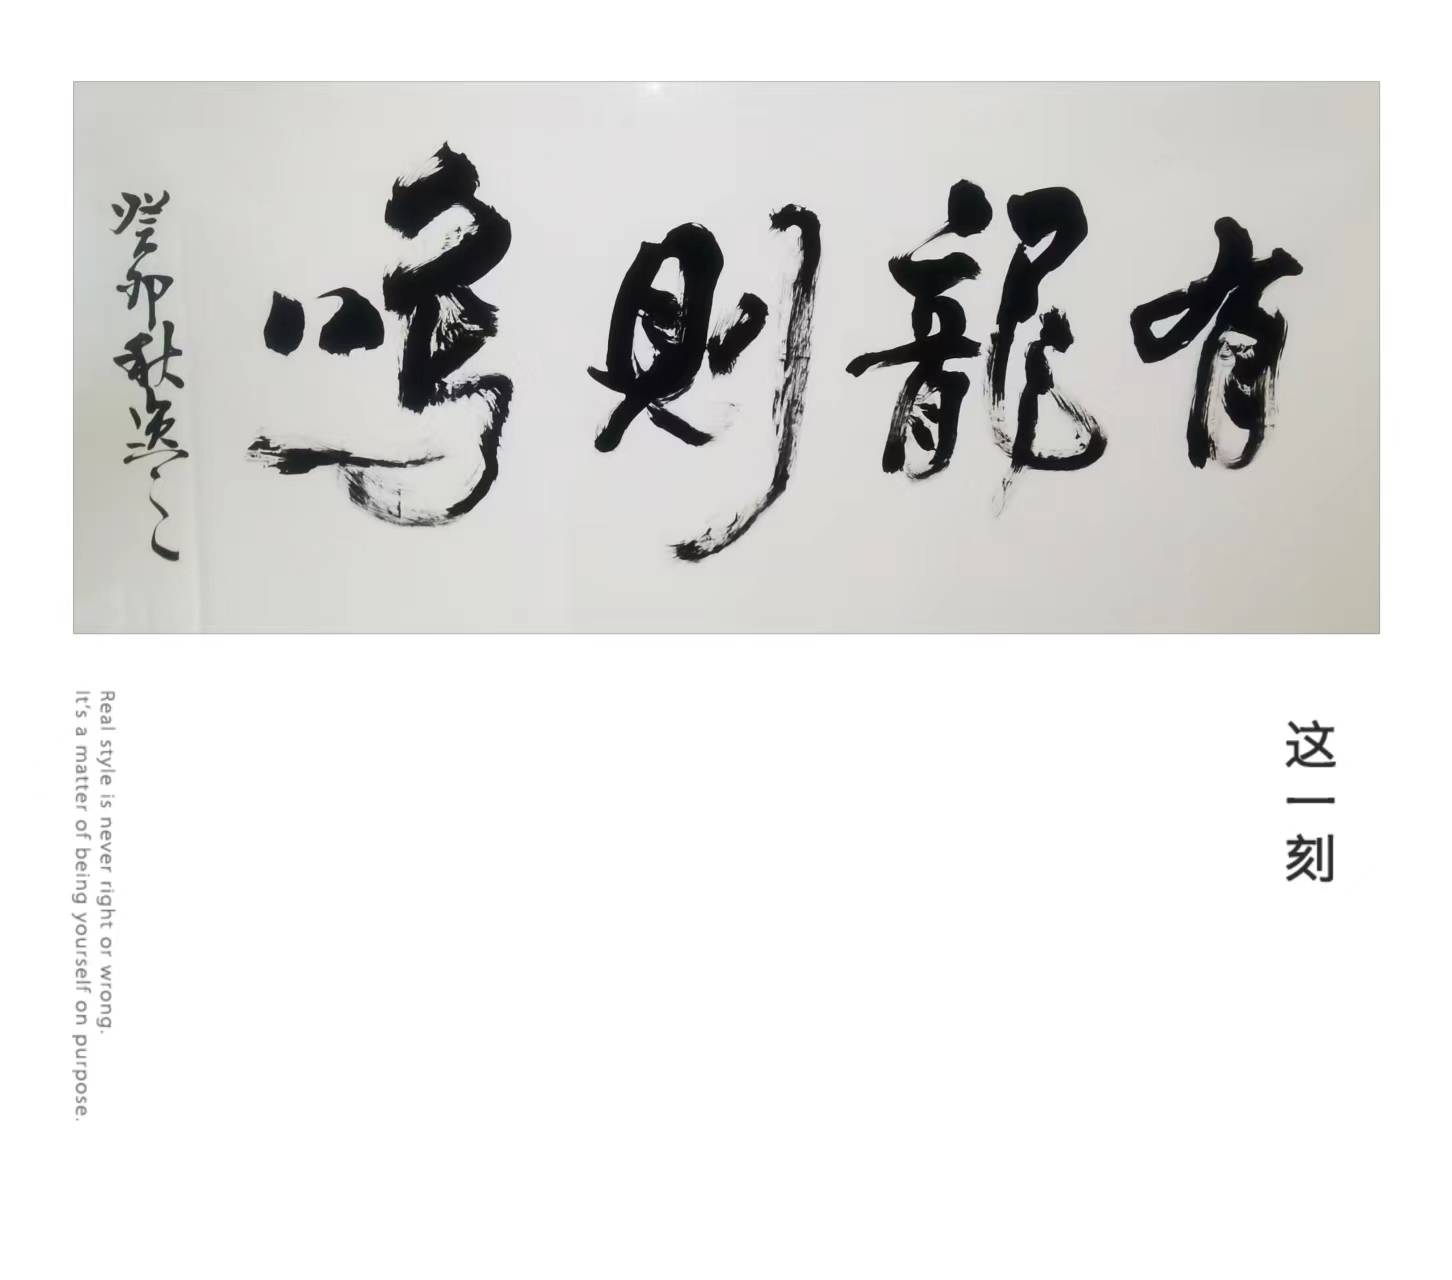 有龍則鳴
癸卯秋
这一刻
Real style is never right or wrong.
It's a matter of being yourself on purpose.